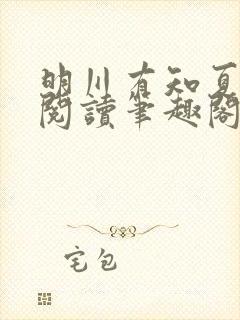 明川有知夏
閱讀筆趣閣
宅包